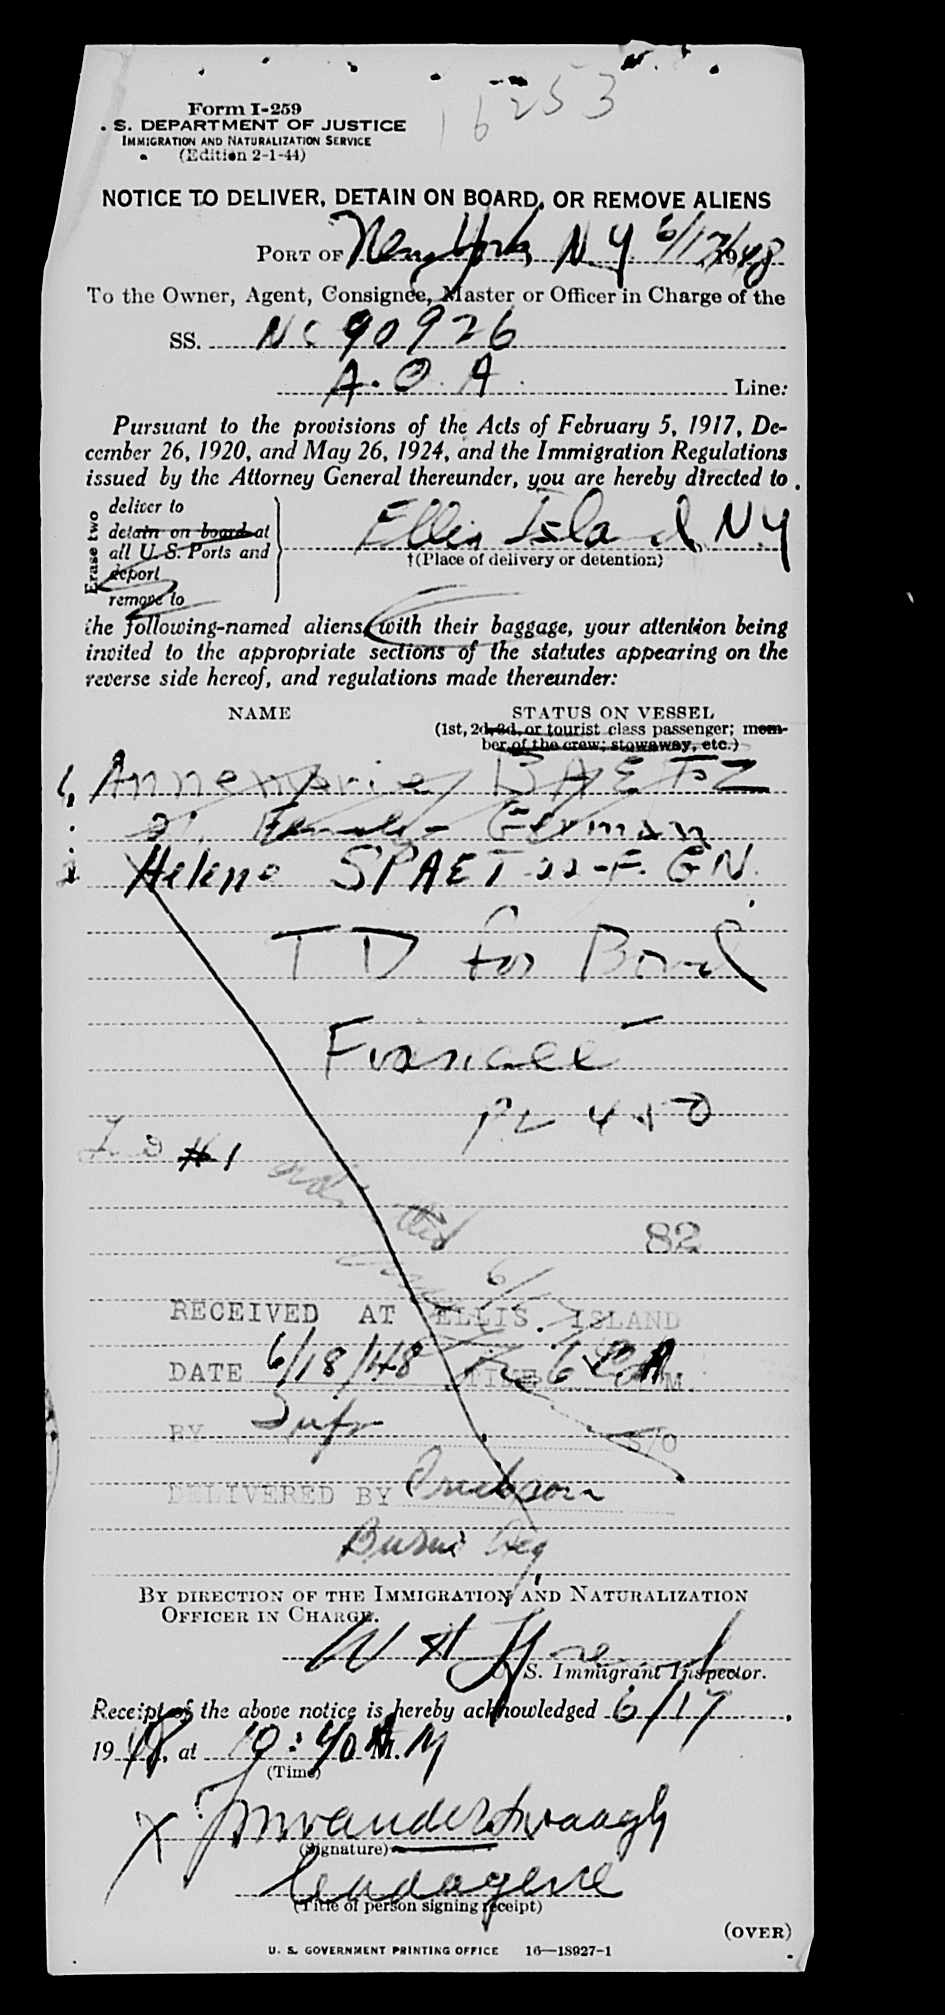 16253
Form I-259
. S. DEPARTMENT OF JUSTICE
IMMIGRATION AND NATURALIZATION SERVICE
(Edition 2-1-44)
NOTICE TO DELIVER, DETAIN ON BOARD, OR REMOVE ALIENS
PORT OF New York, N.Y. 6/17/1948
To the Owner, Agent, Consignee, Master or Officer in Charge of the
SS. NC 90926
A.O.A. Line:
Pursuant to the provisions of the Acts of February 5, 1917, De-
cember 26, 1920, and May 26, 1924, and the Immigration Regulations
issued by the Attorney General thereunder, you are hereby directed to
Erase two
deliver to
detain on board at
all U. S. Ports and
deport
remove to
Ellis Island, N.Y
†(Place of delivery or detention)
the following-named aliens, with their baggage, your attention being
invited to the appropriate sections of the statutes appearing on the
reverse side hereof, and regulations made thereunder:
NAME STATUS ON VESSEL
(1st, 2d, 3d, or tourist class passenger; mem-
ber of the crew; stowaway, etc.)
1, Annemarie BAETZ
Female - German
Helene SPAET 22-F. GN.
TD for Bond
Fiancée
PL 450
#1
82
RECEIVED AT ELLIS ISLAND
DATE 6/18/48 TIME M.
BY S/O
DELIVERED BY Erickson
Burns
BY DIRECTION OF THE IMMIGRATION AND NATURALIZATION
OFFICER IN CHARGE.
W H
U. S. Immigrant Inspector.
Receipt of the above notice is hereby acknowledged 6/17,
1948, at 10:40 M.
(Time)
X
(Signature)
(Title of person signing receipt)
(OVER)
U. S. GOVERNMENT PRINTING OFFICE 16—18927-1